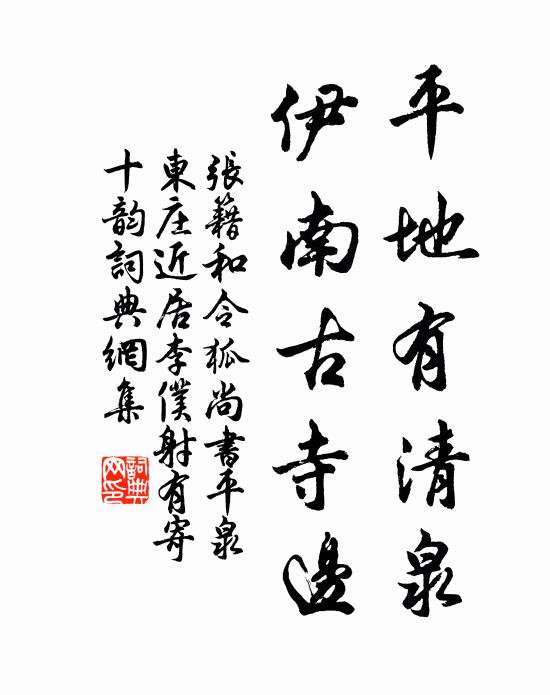 平地有清泉
伊南古寺邊
張籍和令狐尚書平泉
東庄近居李僕射有寄
十韵詞典網集
詞典网印